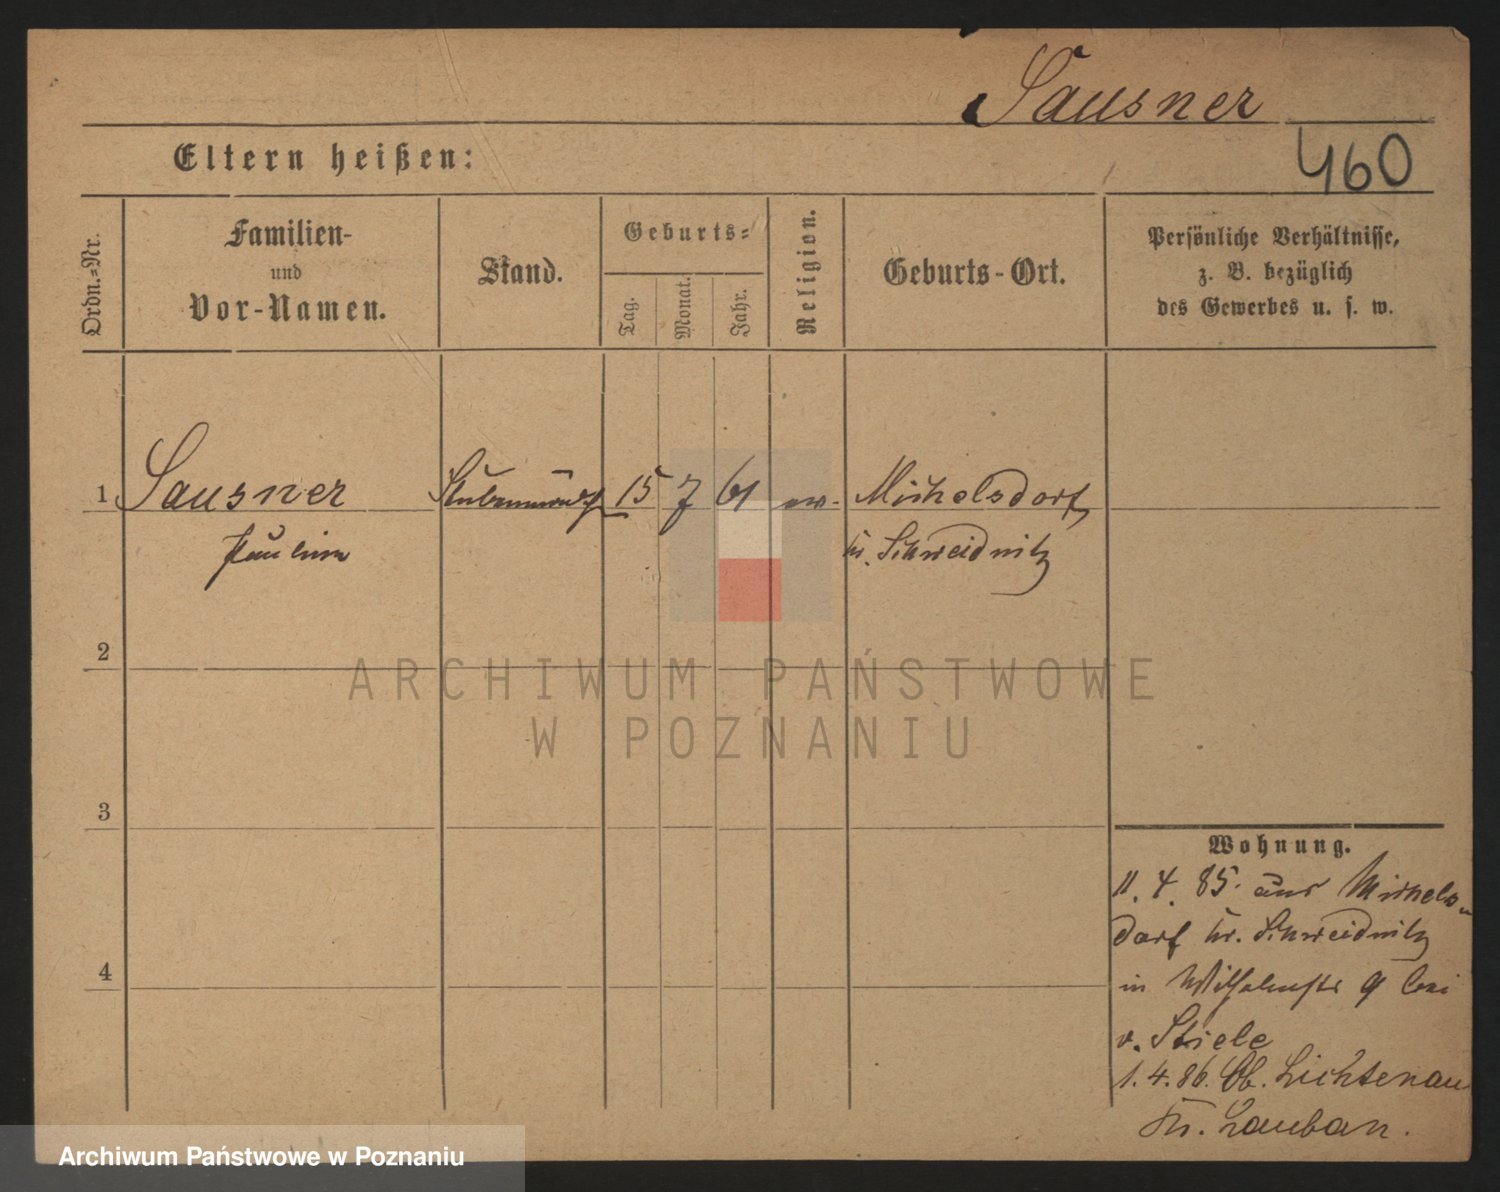 Sausner
460
Eltern heißen:
Ordn.=Nr.
Familien-
und
Vor-Namen.
Stand.
Geburts=
Tag.
Monat.
Jahr.
Religion.
Geburts-Ort.
Persönliche Verhältnisse,
z. B. bezüglich
des Gewerbes u. s. w.
1 Sausner 15 7 61 ev. Michelsdorf
Pauline Kr. Schweidnitz
2
3
4
Wohnung.
11. 4. 85. aus Michels-
dorf Kr. Schweidnitz
in Wilhelmstr 9 bei
v. Stiele
1. 4. 86. Ob. Lichtenau
Kr. Lauban.
ARCHIWUM PAŃSTWOWE
W POZNANIU
Archiwum Państwowe w Poznaniu